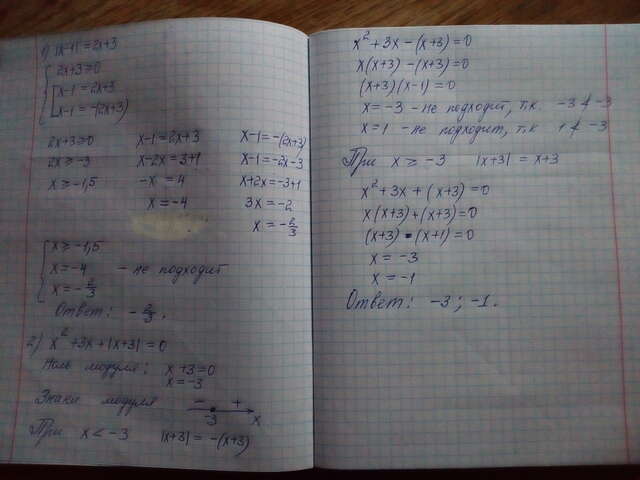 1) |x-1| = 2x+3
{ 2x+3≥0
[ x-1 = 2x+3
[ x-1 = -(2x+3)
2x+3≥0 x-1=2x+3 x-1=-(2x+3)
2x≥-3 x-2x=3+1 x-1=-2x-3
x≥-1,5 -x=4 x+2x=-3+1
x=-4 3x=-2
x=-2/3
{ x≥-1,5
x=-4 - не подходит
x=-2/3
Ответ: -2/3.
2) x² +3x+|x+3|=0
Ноль модуля: x+3=0
x=-3
Знаки модуля - +
-3 x
При x<-3 |x+3| = -(x+3)
x²+3x-(x+3)=0
x(x+3)-(x+3)=0
(x+3)(x-1)=0
x=-3 - не подходит, т.к. -3≮-3
x=1 - не подходит, т.к 1≮-3
При x≥-3 |x+3| = x+3
x²+3x+(x+3)=0
x(x+3)+(x+3)=0
(x+3)·(x+1)=0
x=-3
x=-1
Ответ: -3; -1.